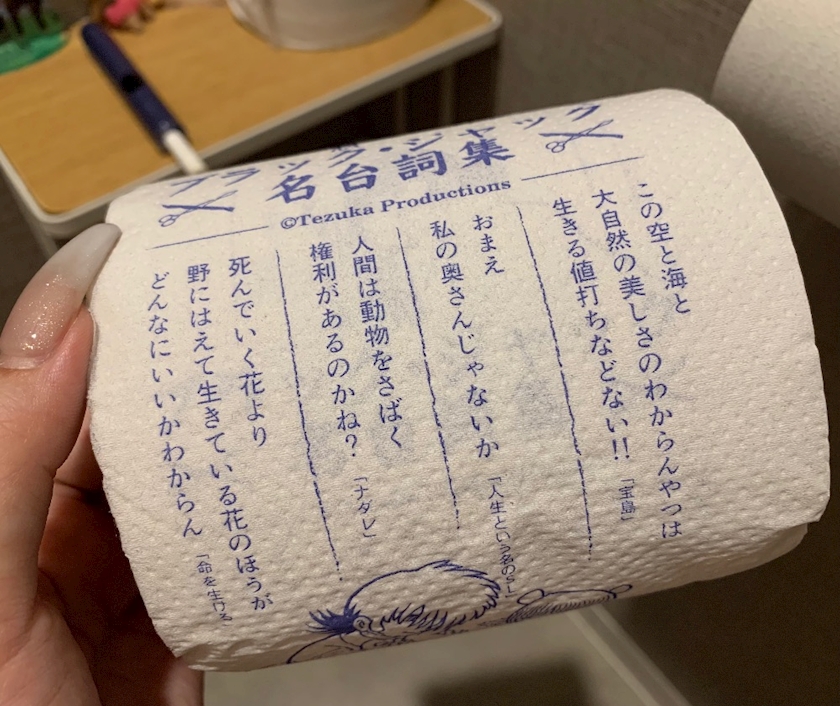 ブラック・ジャック
名台詞集
©Tezuka Productions
この空と海と
大自然の美しさのわからんやつは
生きる値打ちなどない!!
「宝島」
おまえ
私の奥さんじゃないか
「人生という名のSL」
人間は動物をさばく
権利があるのかね?
「ナダレ」
死んでいく花より
野にはえて生きている花のほうが
どんなにいいかわからん
「命を生ける」